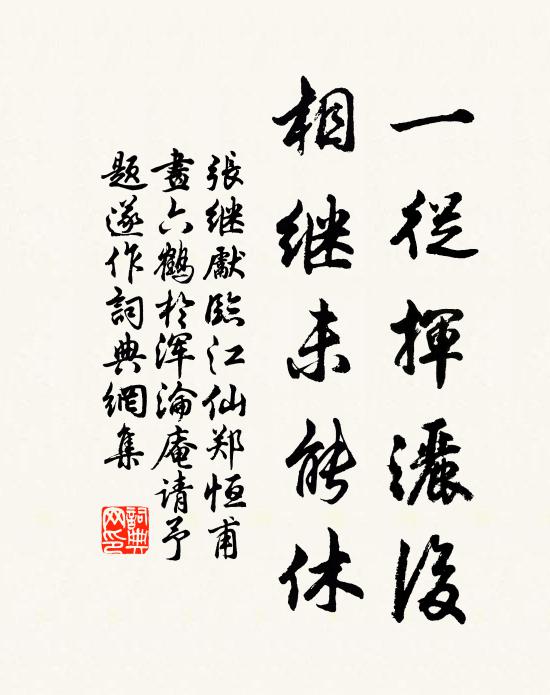 一從揮灑後
相继未能休
張继獻臨江仙郑恒甫
畫六鶴於渾淪庵请予
题遂作詞典網集
詞典网印